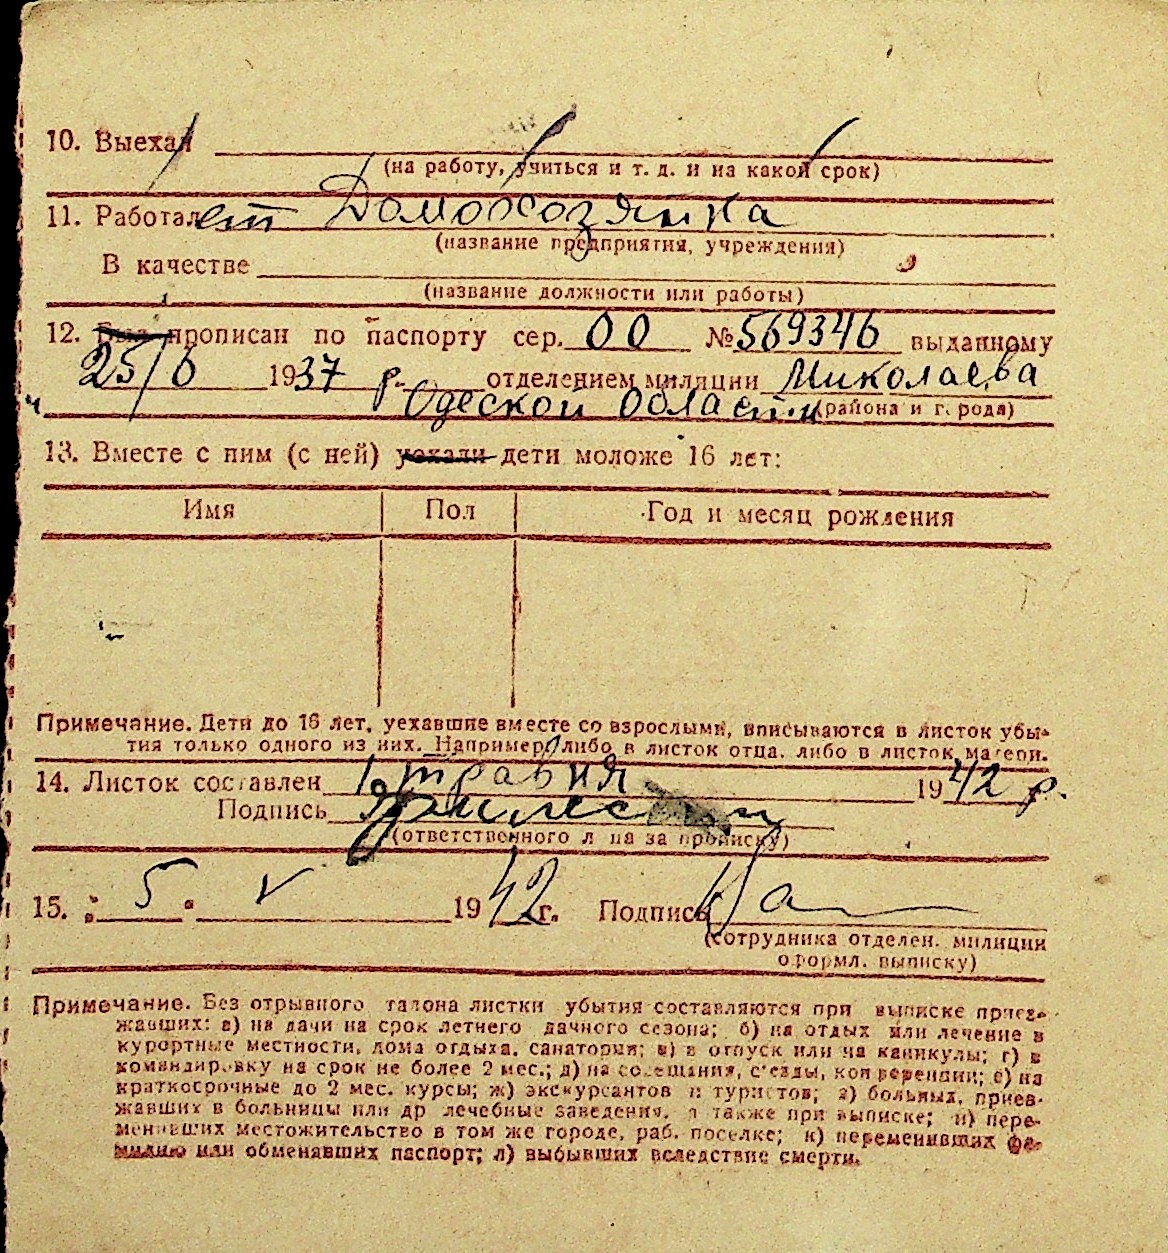 10. Выехал
(на работу, учиться и т. д. и на какой срок)
11. Работает Домохозяйка
(название предприятия, учреждения)
В качестве
(название должности или работы)
12. Был прописан по паспорту сер. 00 № 569346 выданному
25/6 1937 р. отделением милиции Миколаева
Одеской области (района и города)
13. Вместе с ним (с ней) уехали дети моложе 16 лет:
Имя Пол Год и месяц рождения
Примечание. Дети до 16 лет, уехавшие вместе со взрослыми, вписываются в листок убы-
тия только одного из них. Например, либо в листок отца, либо в листок матери.
14. Листок составлен 1 травня 1942 р.
Подпись
(ответственного лица за прописку)
15. „ 5 " V 1942 г. Подпись
(сотрудника отделен. милиции
оформл. выписку)
Примечание. Без отрывного талона листки убытия составляются при выписке приез-
жавших: а) на дачи на срок летнего дачного сезона; б) на отдых или лечение в
курортные местности, дома отдыха, санатории; в) в отпуск или на каникулы; г) в
командировку на срок не более 2 мес.; д) на совещания, с'езды, конференции; е) на
краткосрочные до 2 мес. курсы; ж) экскурсантов и туристов; з) больных, приез-
жавших в больницы или др лечебные заведения, а также при выписке; и) пере-
менивших местожительство в том же городе, раб. поселке; к) переменивших фа-
милию или обменявших паспорт; л) выбывших вследствие смерти.